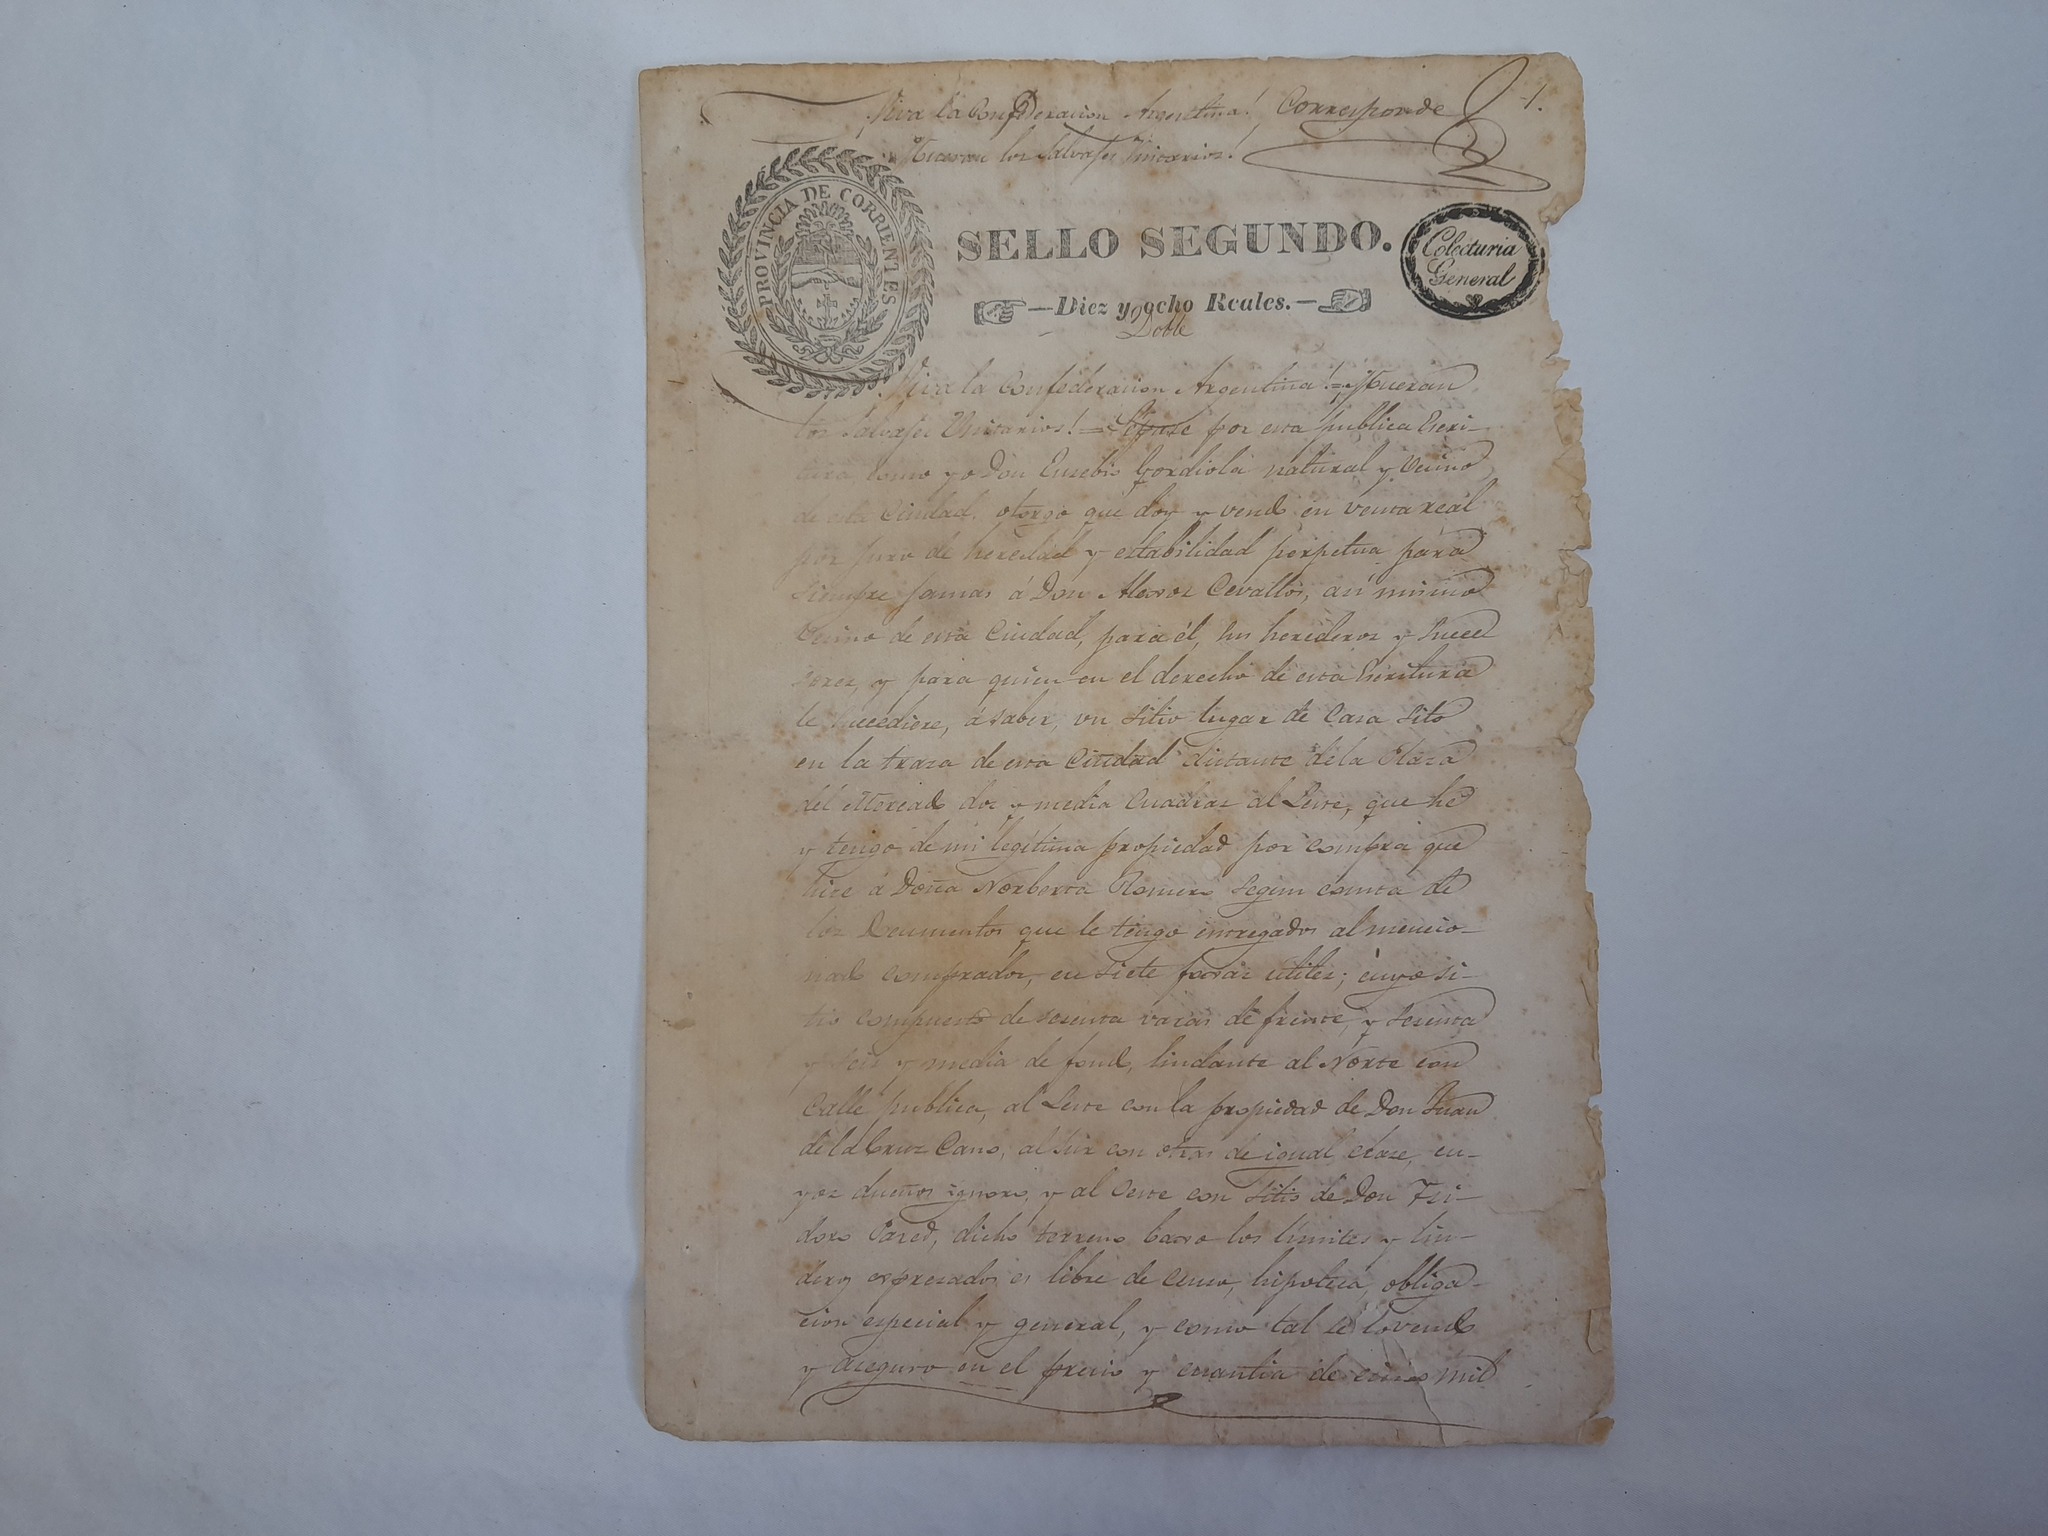 ¡Viva la Confederacion Argentina! Corresponde 1.
¡Mueran los Salvajes Unitarios!
PROVINCIA DE CORRIENTES
SELLO SEGUNDO.
Colecturia
General
—Diez y ocho Reales.—
Doble
¡Viva la Confederacion Argentina!=¡Mueran
los Salvajes Unitarios!=Sépase por esta publica Escri-
tura como yo Don Eusebio Gordiola natural y Vecino
de esta Ciudad, otorgo que doy y vendo en venta real
por juro de heredad y estabilidad perpetua para
siempre jamas á Don Cevallos, asi mismo
Vecino de esta Ciudad, para él, sus herederos y succe
sores, y para quien en el derecho de esta Escritura
le succediere, á saber, un sitio lugar de Casa sito
en la traza de esta Ciudad distante de la Plaza
del Mercado dos y media Cuadras al Leste, que he
y tengo de mi legítima propiedad por compra que
hice á Doña Norberta Romero segun consta de
los Documentos que le tengo entregados al mencio-
nado comprador, en siete fojas utiles; cuyo si-
tio compuesto de sesenta varas de frente, y sesenta
y seis y media de fondo, lindante al Norte con
Calle publica, al Leste con la propiedad de Don Juan
de la Cruz Cano, al Sur con otras de igual clase, cu-
yos dueños ignoro, y al Oeste con Sitio de Don Isi-
doro Pared, dicho terreno baxo los límites y lin-
deros espresados es libre de censo, hipoteca, obliga-
cion especial y general, y como tal se lo vendo
y aseguro en el precio y cuantia de cinco mil